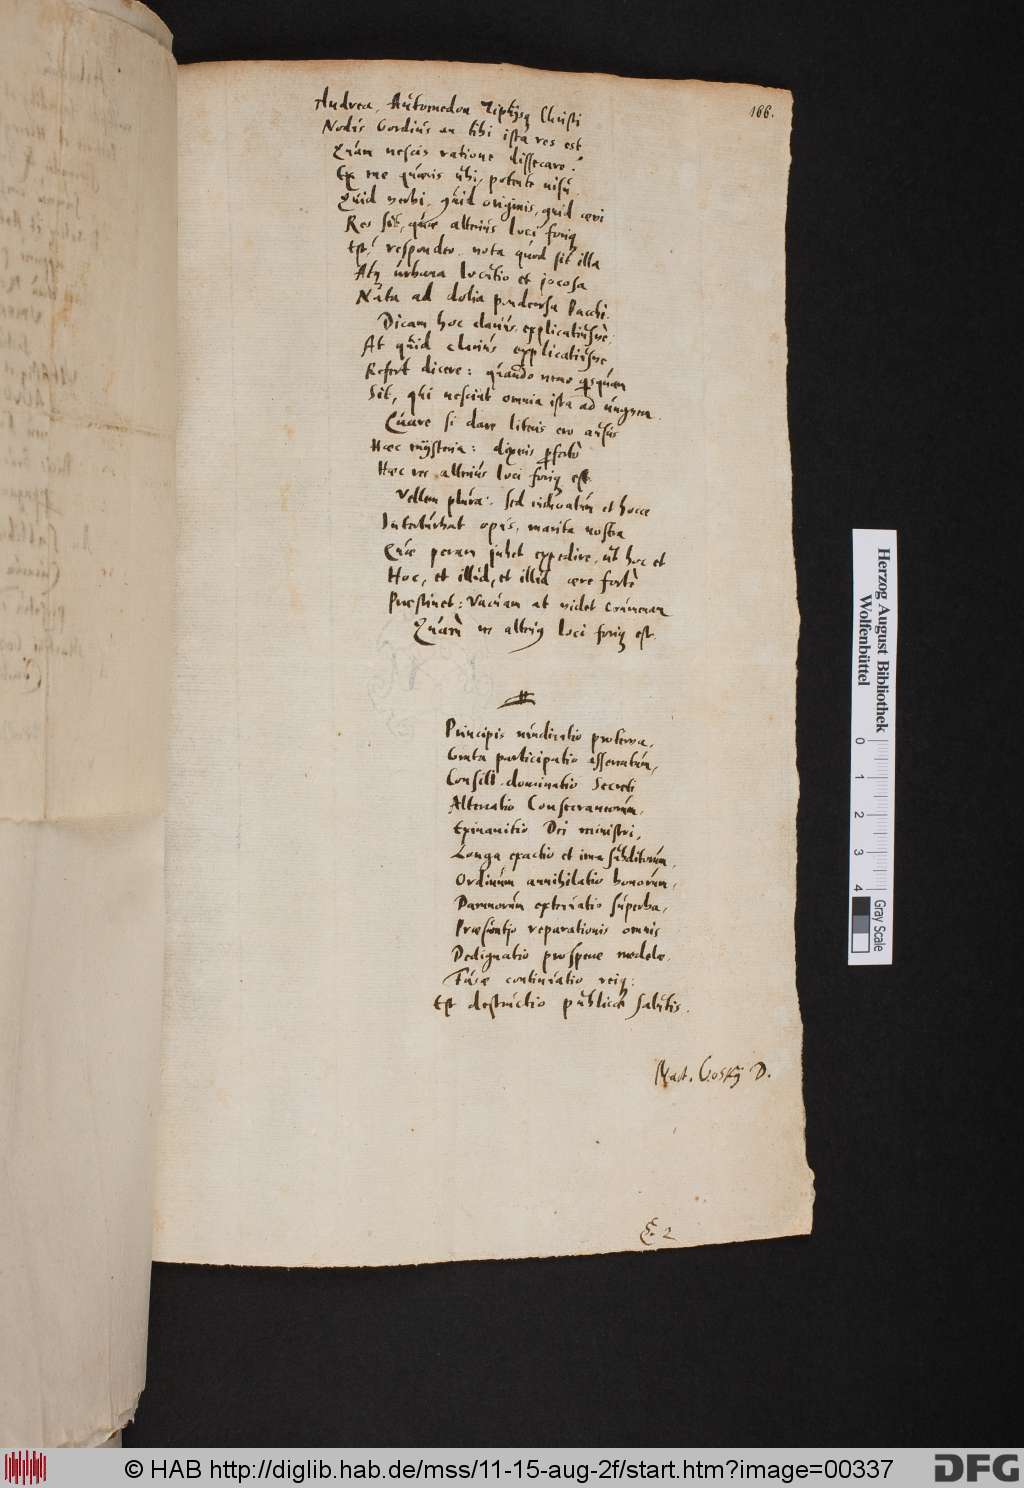 166.
Andrea, Automedon Christi
Nodus Gordius an tibi ista res est
Quam nescis ratione dissecare?
Ex me quæris ubi, potente nisu
Quid verbi, quid originis, quid ævi
Res sit, quæ alterius loci foriq
Est? respondeo. nota quod sit illa
Atq urbana locutio et jocosa
Nata ad dolia ponderosa Bacchi.
Dicam hoc clarius, explicatiusve:
At quid clarius explicatiusve
Refert dicere: quando nemo quisquam
Sit, qui nesciat omnia ista ad unguem.
Quare si dare literis ero ausus
Hæc mysteria: dixeris
Hæc res alterius loci foriq est.
Vellem plura: sed et hocce
Interturbat opus, marita nostra
Quæ peram jubet expedire, ut hoc et
Hoc, et illud, et illud ære forte
Præstinet: Vacuam at videt crumenam
Quare res alteriq loci foriq est.
Principis vindicatio proterva,
participatio asseratum,
Consili dominatio Secreti
Altercatio Consecraneorum,
Exinanitio Dei ministri,
Longa exactio et ima subditorum,
Ordinum annihilatio bonorum,
Damnorum superba,
reparationis omnis
Dedignatio prosperæ medelæ,
Furæ continuatio reiq:
Est destructio publicæ salutis.
Mart. Gosky D.
2
Herzog August Bibliothek
Wolfenbüttel
0 1 2 3 4
Gray Scale
© HAB http://diglib.hab.de/mss/11-15-aug-2f/start.htm?image=00337
DFG